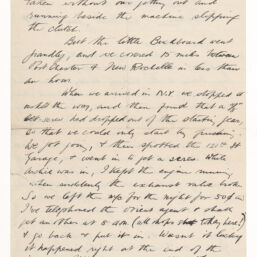 taken without our getting out and
running beside the machine slipping
the clutch.
But the little Buckboard went
grandly, and we covered 10 miles between
Port Chester & New Rochelle in less than
an hour.
When we arrived in N.Y. we stopped at
the way, and then found that a
set screw had dropped out of the starting gear,
so that we could only start by pushing.
We got going, & then spotted the
Garage, & went in to get a screw. While
was in, I kept the engine running
when suddenly the exhaust valve broke.
So we left the for the night for 50¢ &
I've telephoned the Orient agent & shall
get another at 8 a.m. (all shut today here!)
& go back & put it in. Wasn't it lucky
it happened right at the end of the